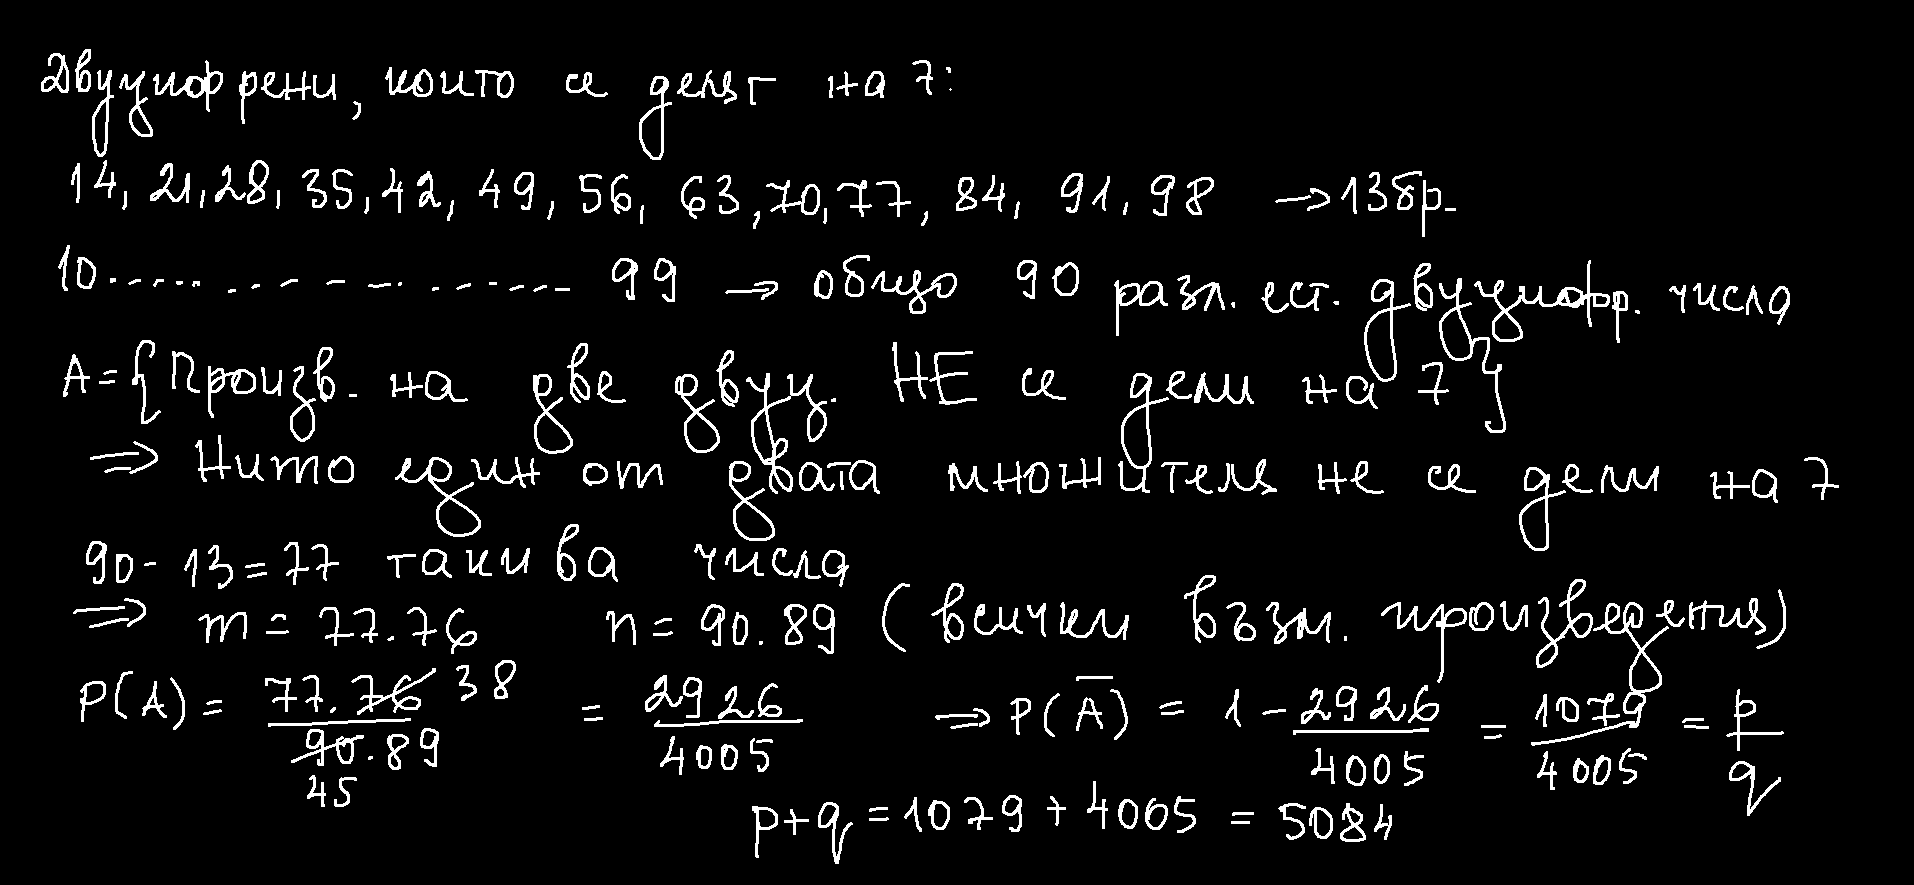 Двуцифрени, които се делят на 7:
14, 21, 28, 35, 42, 49, 56, 63, 70, 77, 84, 91, 98 → 13бр.
10 .................. 99 → общо 90 разл. ест. двуцифр. числа
A = { Произв. на две двуц. НЕ се дели на 7 }
⇒ Нито един от двата множителя не се дели на 7
90 - 13 = 77 такива числа
⇒ m = 77.76 n = 90.89 (всички възм. произведения)
P(A) = 77.76 38 / 90.89 45 = 2926/4005 ⇒ P(A̅) = 1 - 2926/4005 = 1079/4005 = p/q
p+q = 1079 + 4005 = 5084